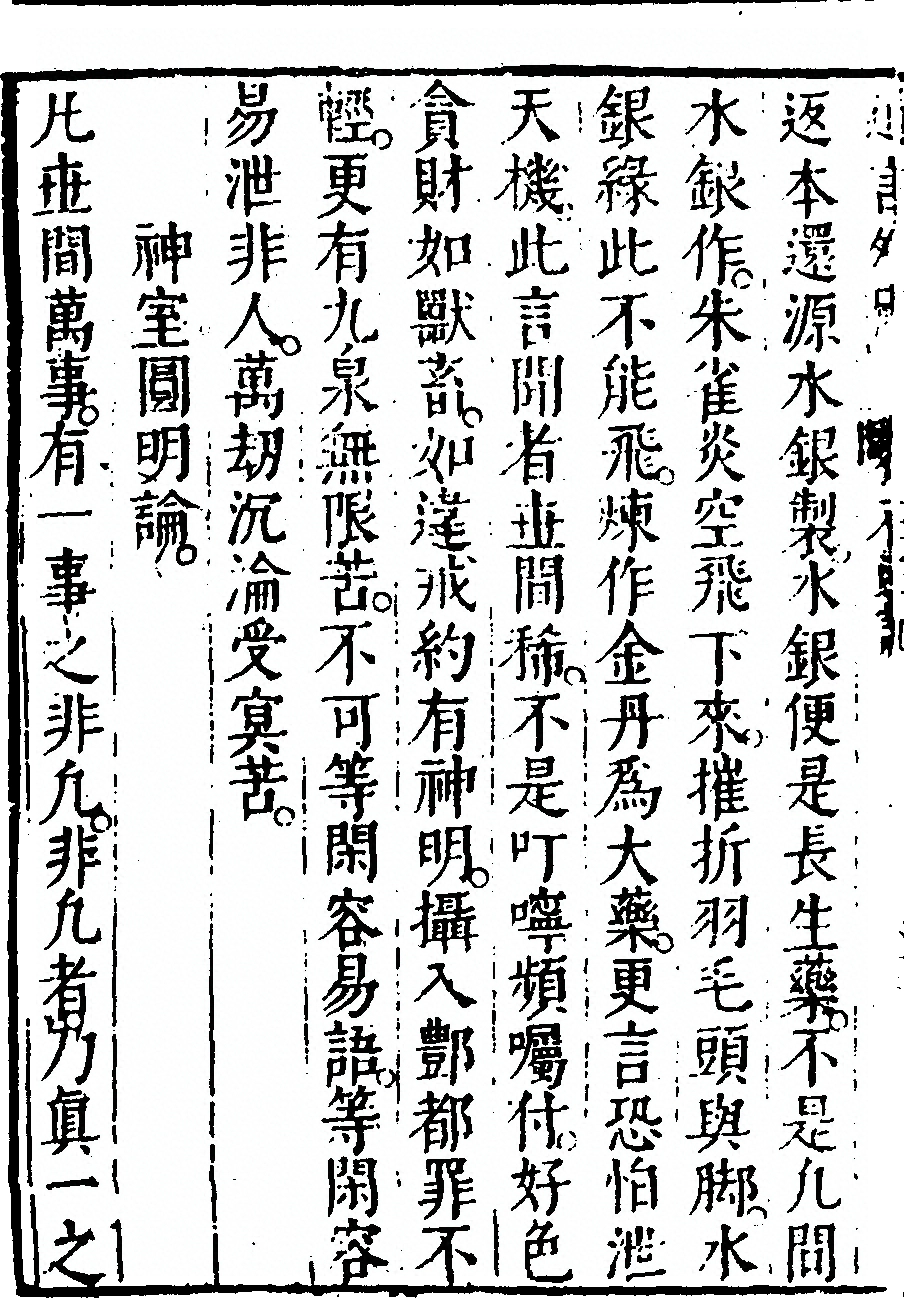 返本還源水銀製水銀便是長生藥。不是凢間
水銀作。朱雀炎空飛下來。摧折羽毛頭與脚。水
銀緣此不能飛。煉作金丹爲大藥。更言恐怕泄
天機。此言聞者世間稀。不是叮嚀頻囑付。好色
貪財如獸畜。如違戒約有神明。攝入酆都罪不
輕。更有九泉無限苦。不可等閑容易語。等閑容
易泄非人。萬劫沉淪受冥苦。
神室圓明論。
凢世間萬事。有一事之非凢。非凢者。乃眞一之